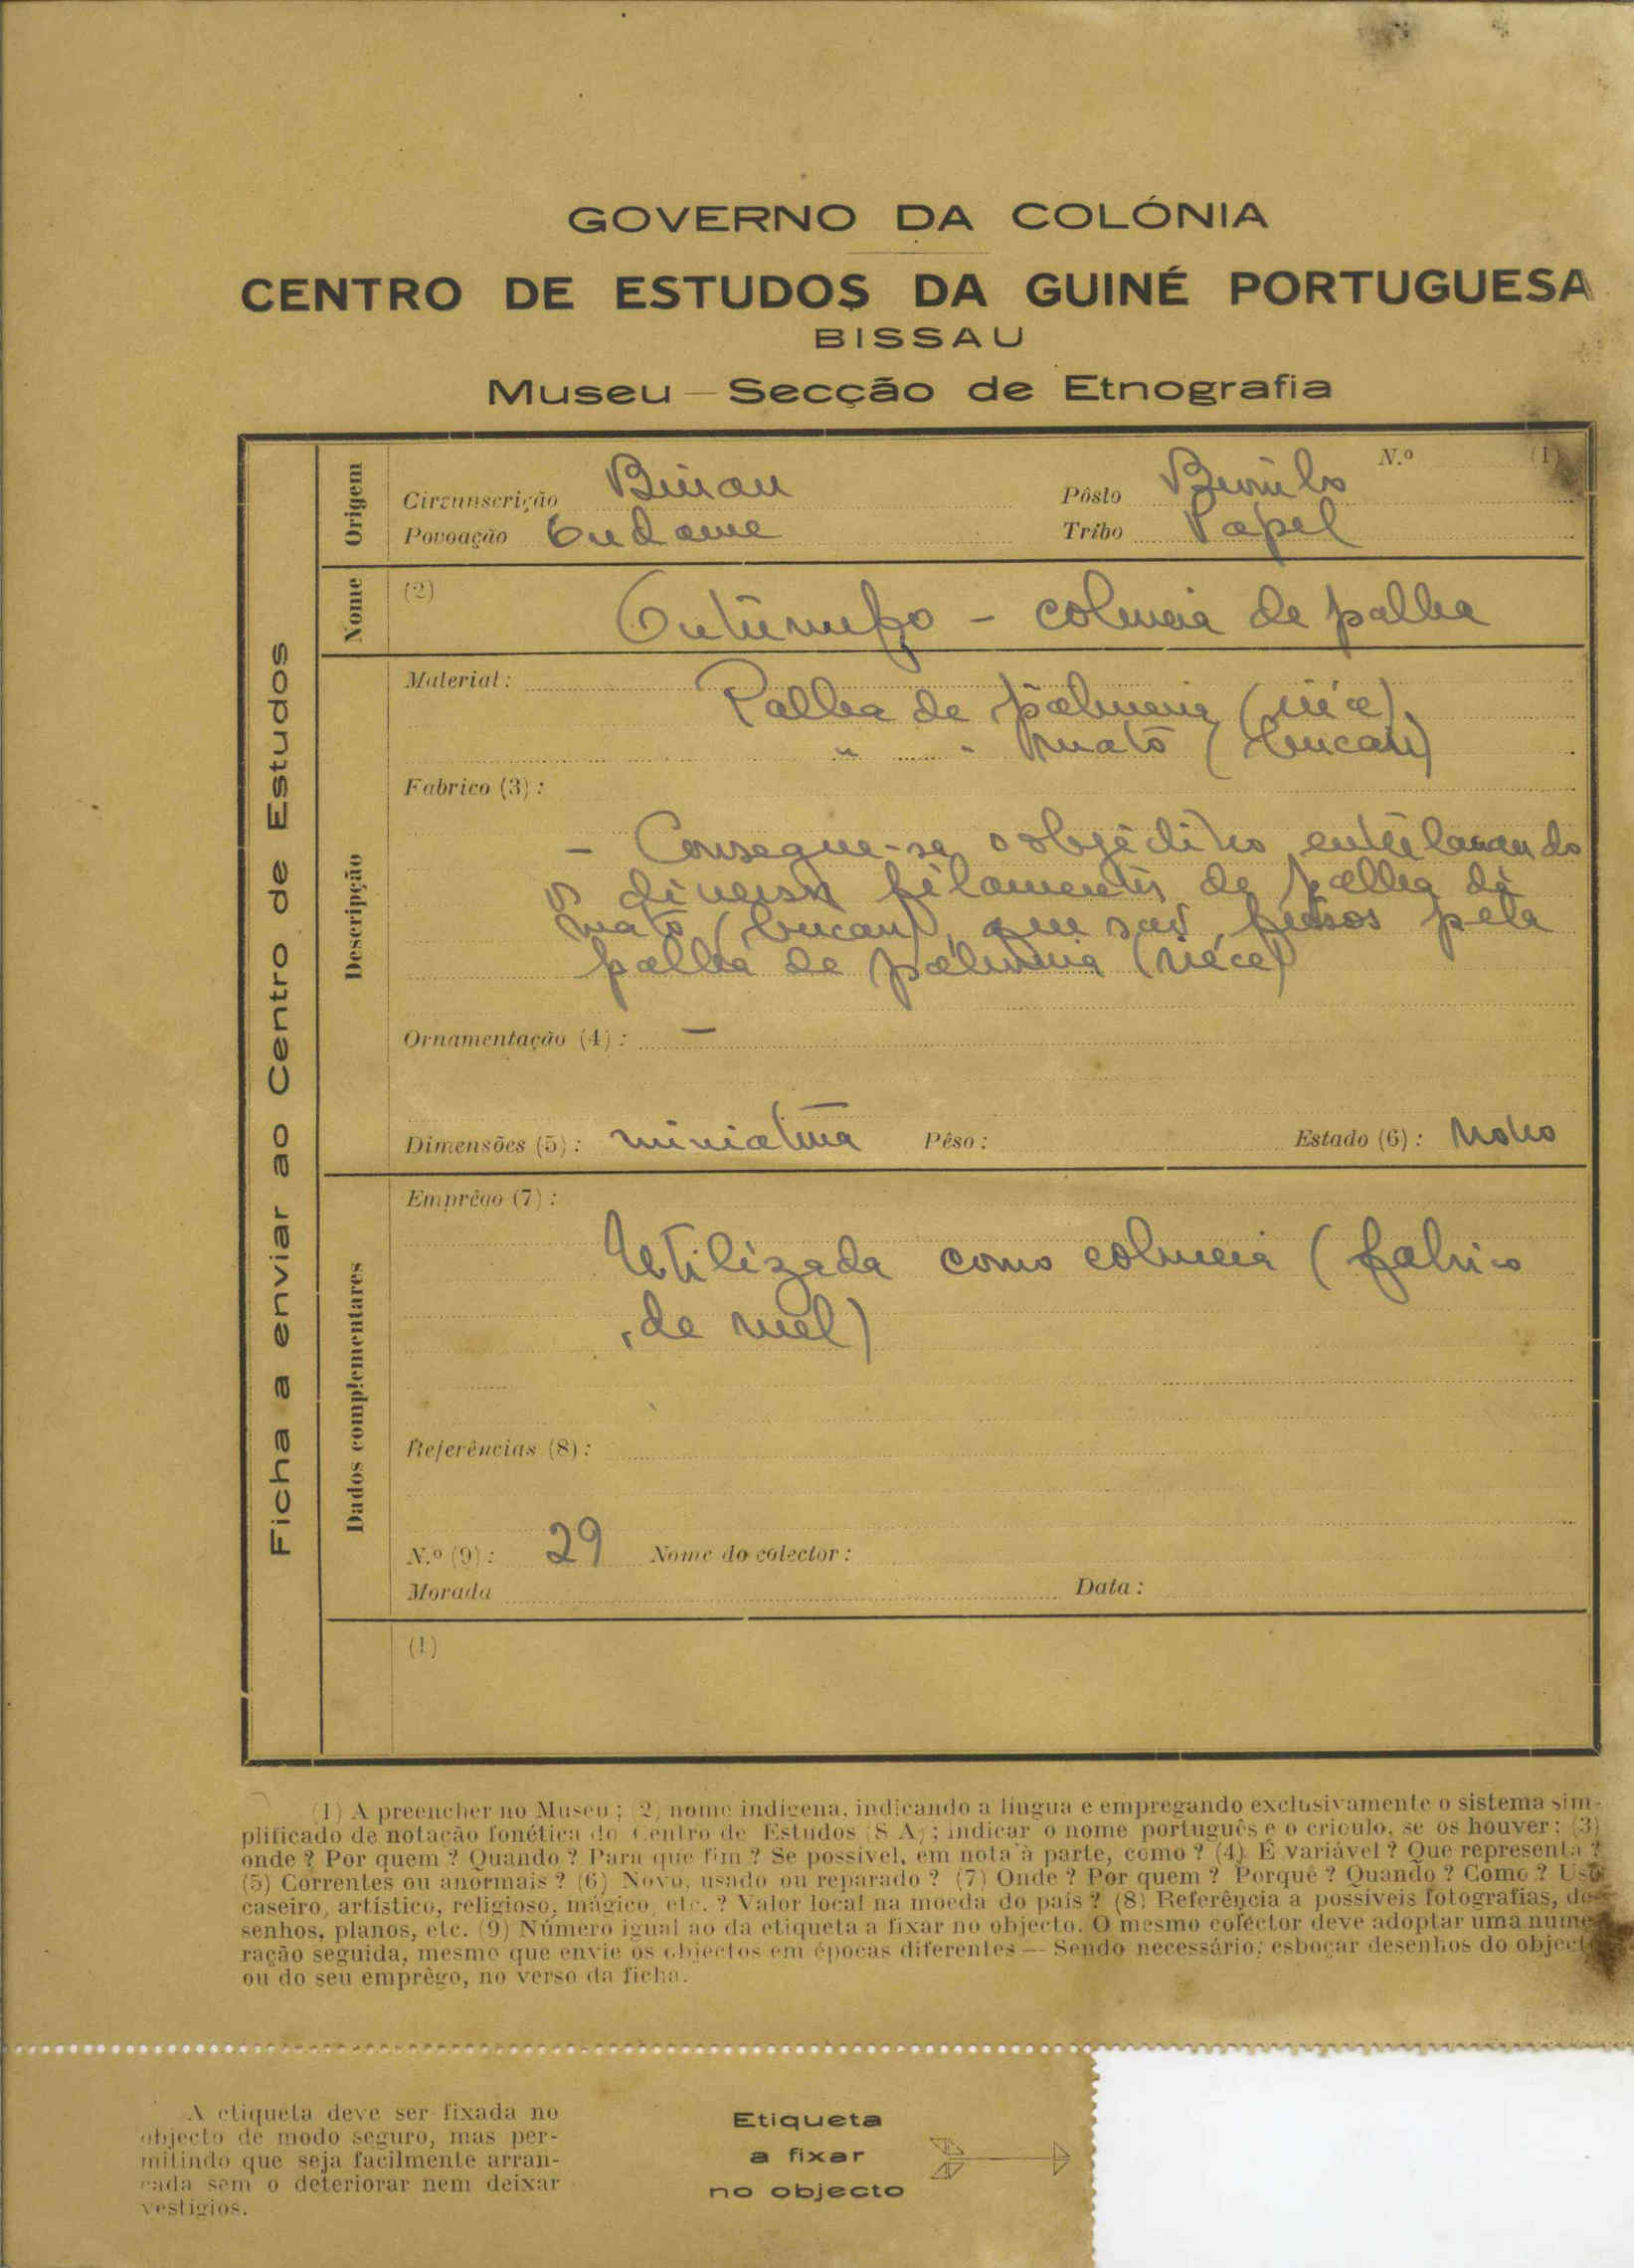 GOVERNO DA COLÓNIA
CENTRO DE ESTUDOS DA GUINÉ PORTUGUESA
BISSAU
Museu — Secção de Etnografia
Ficha a enviar ao Centro de Estudos
Origem
N.º (1)
Circunscrição Bissau Pôsto
Povoação Tribo Papel
Nome
(2) - colmeia de palha
Descripção
Material:
Palha de palmeira
" " mato (
Fabrico (3):
- Consegue-se o objectivo entrelaçando
os diversos filamentos de palha de
mato ( que são presos pela
palha de palmeira
Ornamentação (4): —
Dimensões (5): miniatura Pêso: Estado (6): Novo
Dados complementares
Emprêgo (7):
Utilizada como colmeia (fabrico
de mel)
Referências (8):
N.º (9): 29 Nome do colector:
Morada Data:
(1)
(1) A preencher no Museu; (2) nome indígena, indicando a língua e empregando exclusivamente o sistema sim-
plificado de notação fonética do Centro de Estudos (S A); indicar o nome português e o crioulo, se os houver; (3)
onde ? Por quem ? Quando ? Para que fim ? Se possível, em nota à parte, como ? (4) É variável ? Que representa ?
(5) Correntes ou anormais ? (6) Novo, usado ou reparado ? (7) Onde ? Por quem ? Porquê ? Quando ? Como ? Uso
caseiro, artístico, religioso, mágico, etc. ? Valor local na moeda do país ? (8) Referência a possíveis fotografias, de-
senhos, planos, etc. (9) Número igual ao da etiqueta a fixar no objecto. O mesmo coléctor deve adoptar uma nume-
ração seguida, mesmo que envie os objectos em épocas diferentes — Sendo necessário; esboçar desenhos do objecto
ou do seu emprêgo, no verso da ficha.
A etiqueta deve ser fixada no
objecto de modo seguro, mas per-
mitindo que seja facilmente arran-
cada sem o deteriorar nem deixar
vestígios.
Etiqueta
a fixar
no objecto